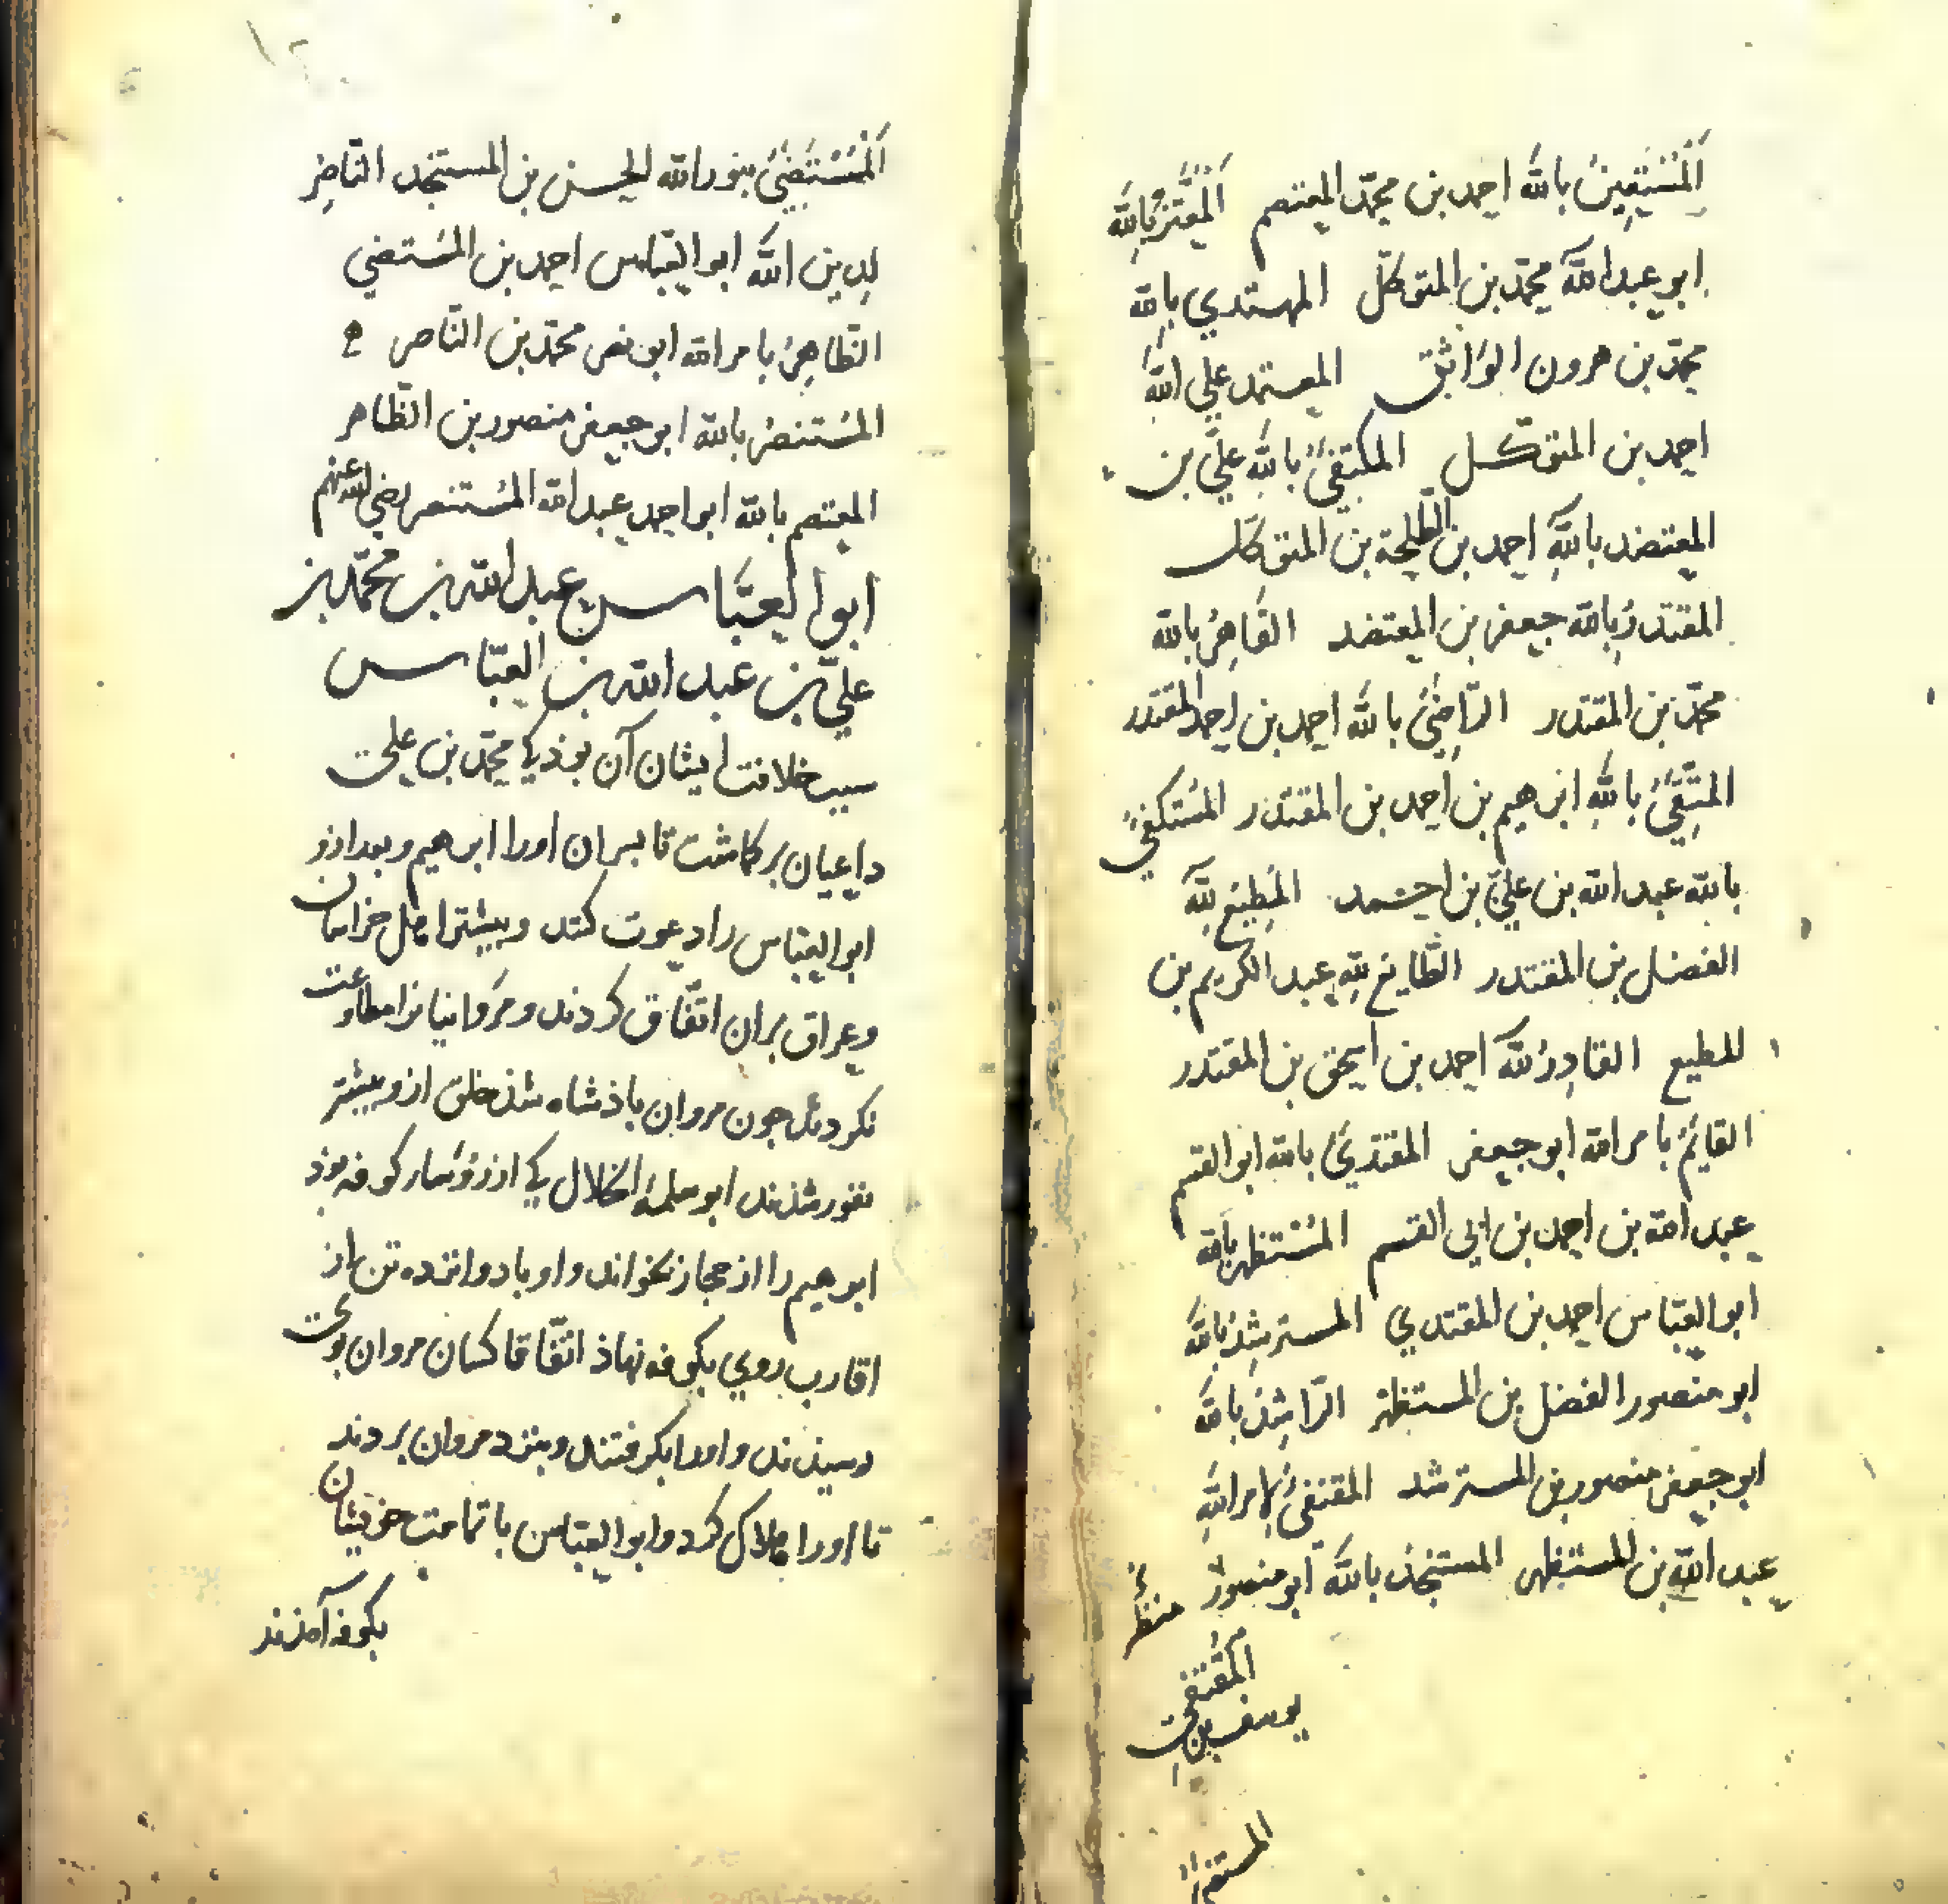 المستعين بالله احمد بن محمد المعتصم المعتز بالله
ابو عبدالله محمد بن المتوكل المهتدي بالله
محمد بن هرون الواثق المعتمد علي الله
احمد بن المتوكل المكتفي بالله علي بن
المعتضد بالله احمد بن الطلحة بن المتوكل
المقتدر بالله جعفر بن المعتضد القاهر بالله
محمد بن المقتدر الراضي بالله احمد بن احمد المقتدر
المتقي بالله ابرهيم بن احمد بن المقتدر المستكفي
بالله عبد الله بن علي بن احمد المطيع لله
الفضل بن المقتدر الطايع لله عبد الكريم بن
للمطيع القادر لله احمد بن اسحق بن المقتدر
القايم بامر الله ابو جعفر المقتدي بالله ابو القسم
عبد الله بن احمد بن ابي القسم المستظهر بالله
ابو العباس احمد بن المقتدي المسترشد بالله
ابو منصور الفضل بن المستظهر الراشد بالله
ابو جعفر منصور بن المسترشد المقتفي لامر الله
عبد الله بن المستظهر المستنجد بالله ابو منصور
المقتفي
يوسف بن
المستضي
المستضي بنور الله الحسن بن المستنجد الناصر
لدين الله ابو العباس احمد بن المستضي
الظاهر بامر الله ابو نصر محمد بن الناصر
المستنصر بالله ابو جعفر منصور بن الظاهر
المعتصم بالله ابو احمد عبد الله المستنصر رضي الله عنهم
ابو العباس عبد الله بن محمد بن
علي بن عبد الله بن العباس
سبب خلافت ايشان آن بوذ كي محمد بن علي
داعيان بر كماشت تا پسران اورا ابرهيم و بعد ازو
ابو العباس را دعوت كنند و بيشتر اهل خراسان
و عراق بران اتفاق كردند و مروانيانرا مطاوعت
نكردند چون مروان باذشاه شذ خلق ازو بيشتر
نفور شذند ابو سلمة الخلال يكي از رؤساء كوفه بوذ
ابرهيم را از حجاز بخواند و او با دوانزده تن از
اقارب روي بكوفه نهاذ اتفاقا كسان مروان بوي
رسيذند و اورا بكرفتند و بنزد مروان بردند
تا اورا هلاك كرد و ابو العباس با تمامت خويشان
بكوفه آمذند